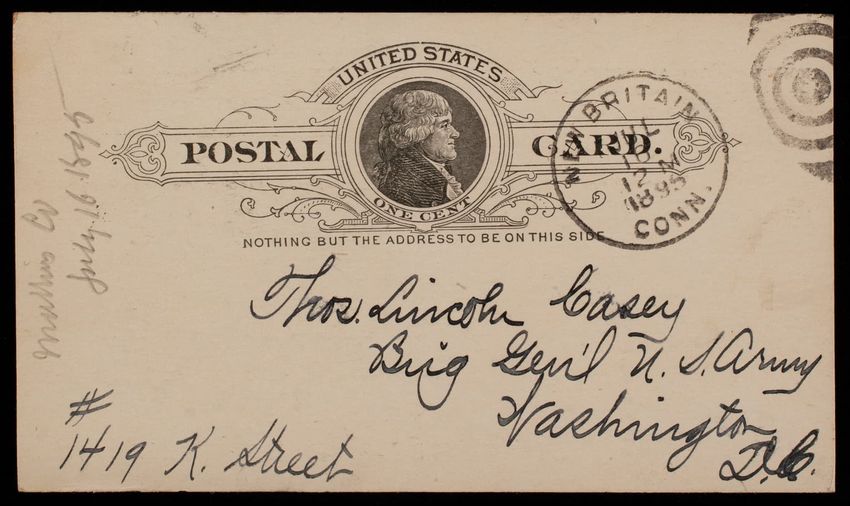 UNITED STATES
POSTAL CARD.
ONE CENT
NOTHING BUT THE ADDRESS TO BE ON THIS SIDE
NEW BRITAIN
JUL
18
12 M
1895
CONN.
Thos. Lincoln Casey
Brig Gen'l U. S. Army
Washington
D.C.
#
1419 K. Street
July 19 1895